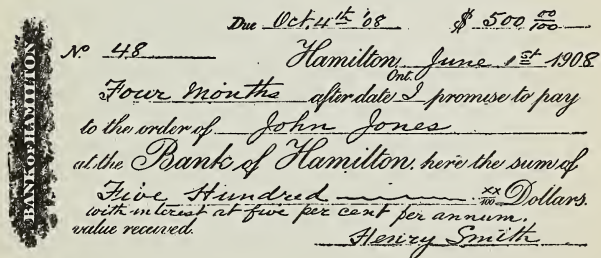 Due Oct. 4th '08 $ 500 00/100
No 48 Hamilton, Ont. June 1st 1908
Four Months after date I promise to pay
to the order of John Jones
at the Bank of Hamilton, here the sum of
Five Hundred xx/100 Dollars.
with interest at five per cent per annum.
value received.
Henry Smith
BANK OF HAMILTON